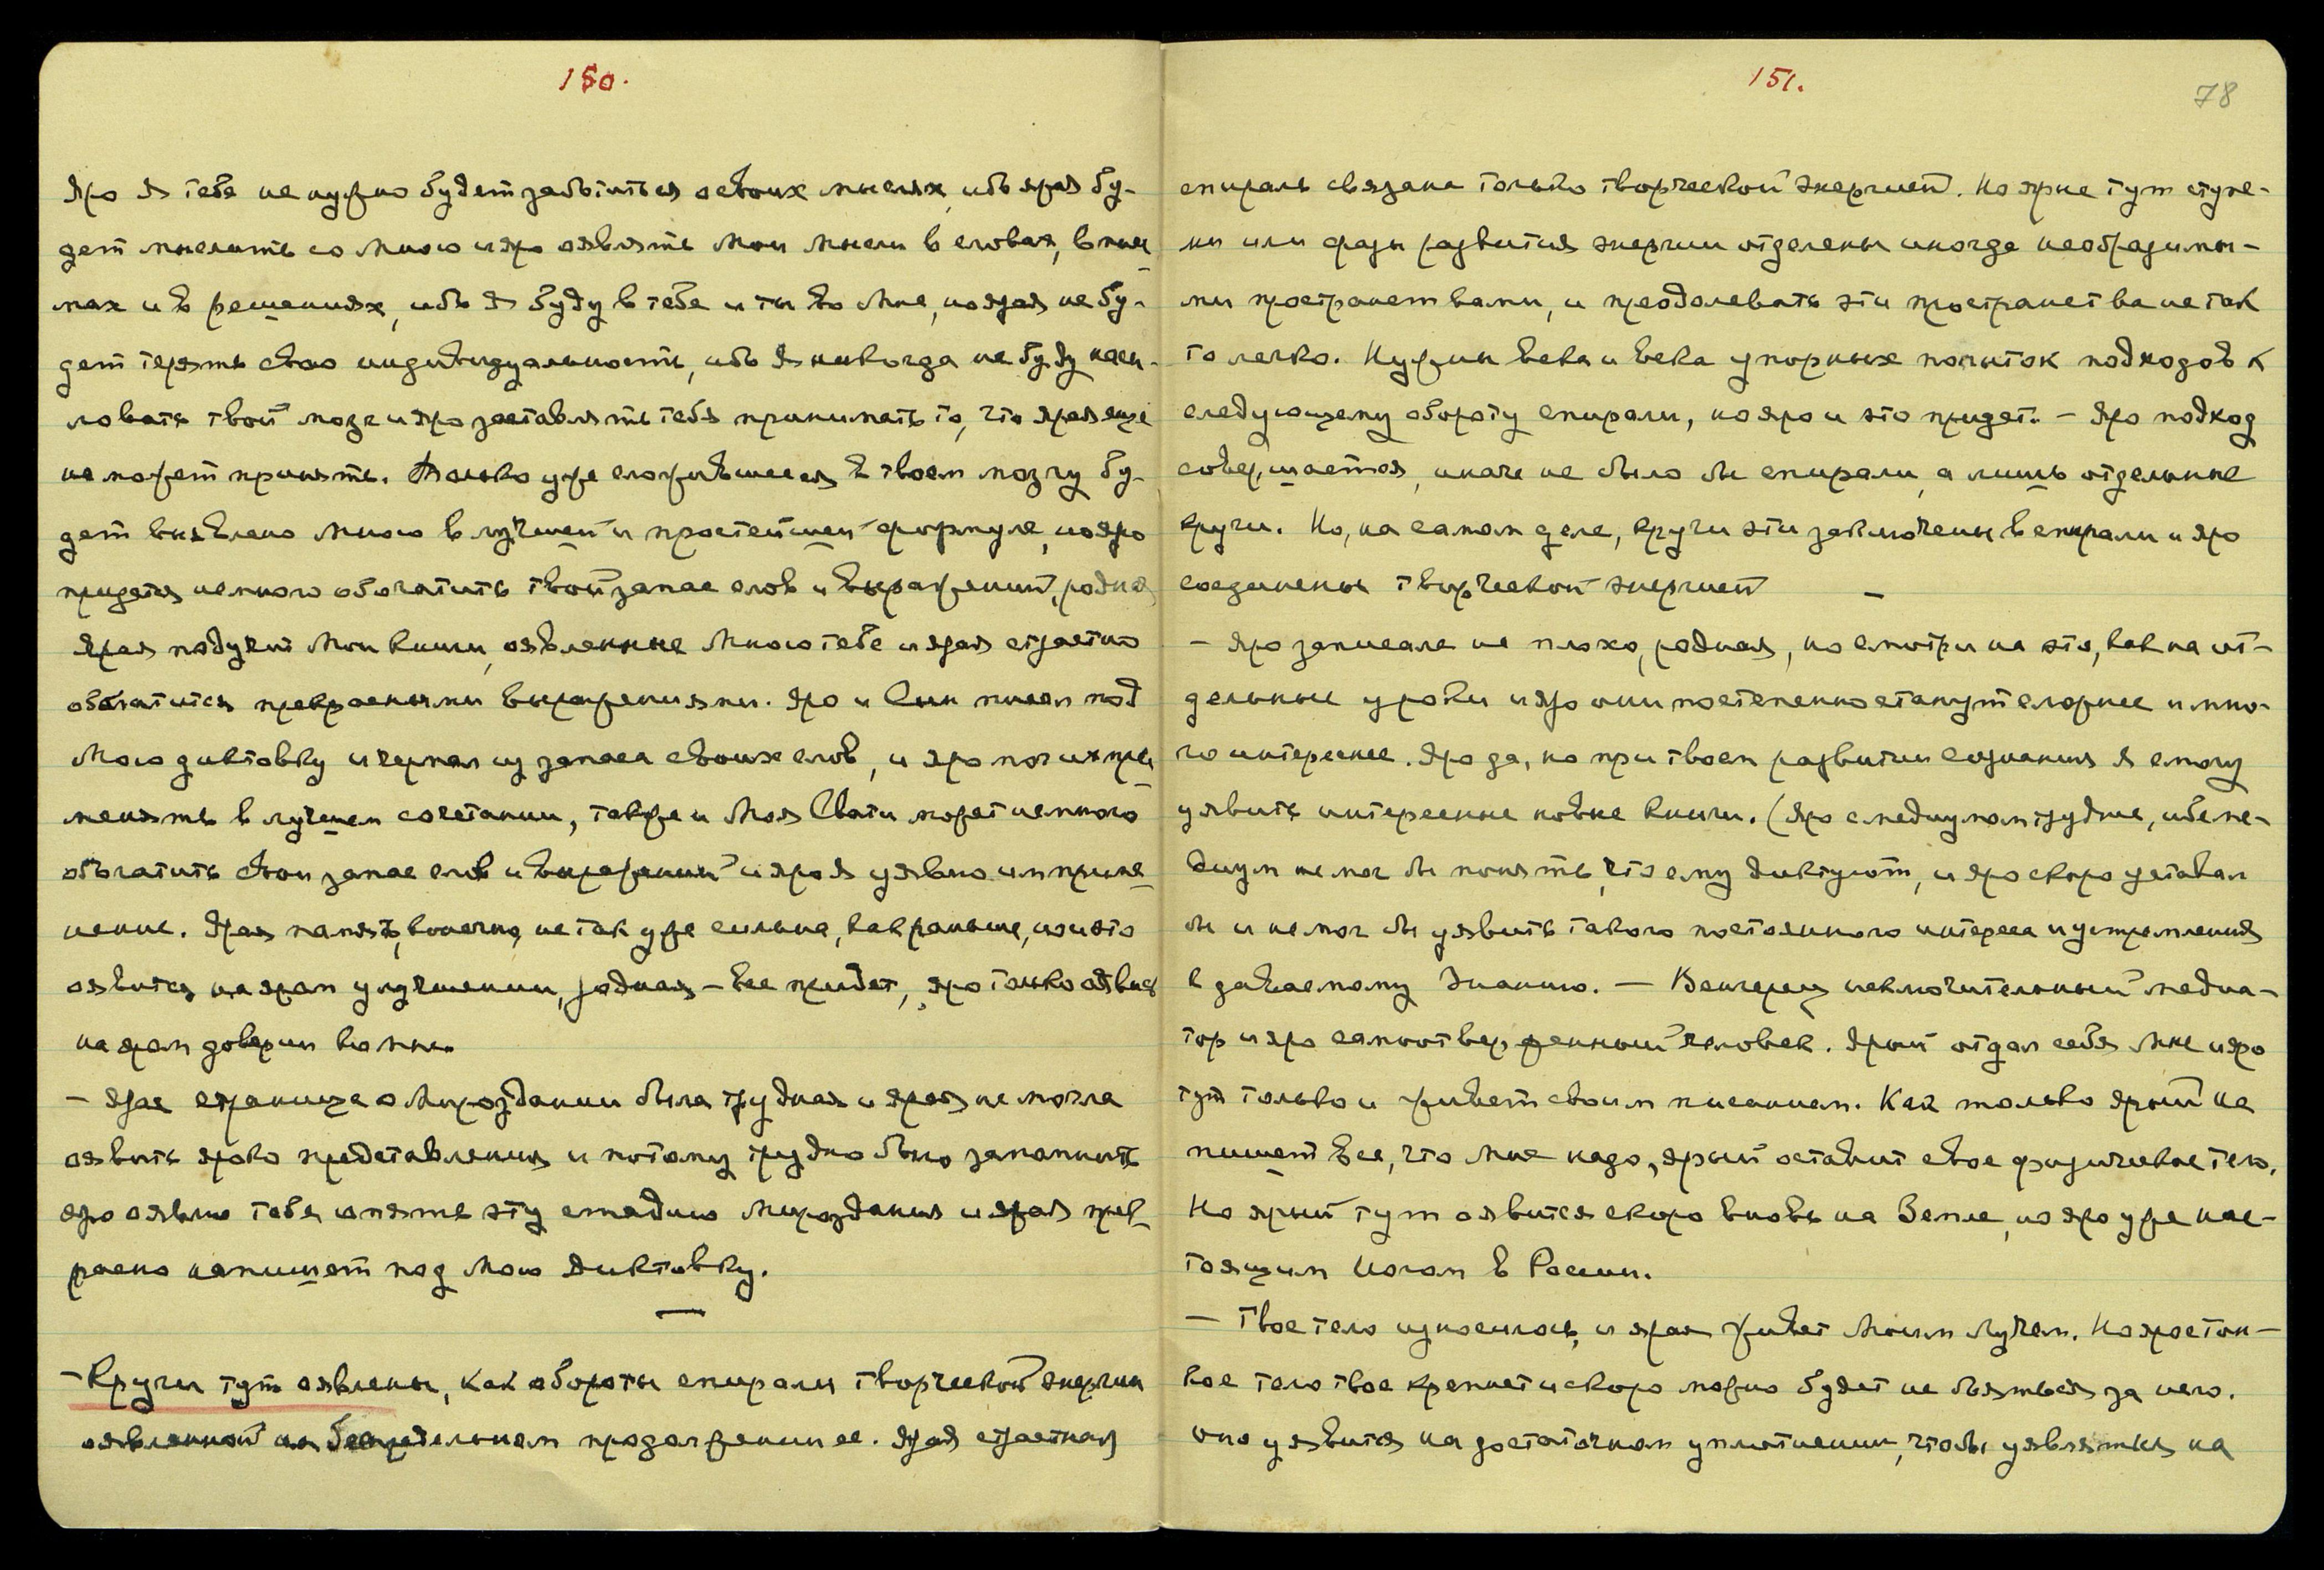 150.
Яро Я тебе не нужно будет заботиться о своих мыслях, ибо ярая бу-
дет мыслить со Мною и яро являть Мои мысли в словах, в пись-
мах и в решениях, ибо Я буду в тебе и ты во Мне, но ярая не бу-
дет терять свою индивидуальность, ибо Я никогда не буду наси-
ловать твой мозг и яро заставлять тебя принимать то, что ярая еще
не может принять. Только уже сложившееся в твоем мозгу бу-
дет выявлено Мною в лучшей и простейшей формуле, но яро
придется немного обогатить твой запас слов и выражений, родная
Ярая получит Мои книги, оявленные Мною тебе и ярая страстно
обогатится прекрасными выражениями. Яро и Сын писал под
Мою диктовку и черпал из запаса своих слов, и яро мог их при-
менять в лучшем сочетании, также и Моя Свати может немного
обогатить свой запас слов и выражений и яро Я уявлю им приме-
нение. Ярая память, конечно, не так уже сильна, как раньше, но и это
оявится на яром улучшении, родная – все придет, яро только оявись
на яром доверии ко Мне.
– Ярая страница о Мироздании была трудная и ярая не могла
оявить яркого представления и потому трудно было запомнить
яро оявлю тебе опять эту стадию Мироздания и ярая прек-
расно напишет под Мою диктовку.
—
– Круги тут оявлены, как обороты спирали творческой энергии
оявленной на беспредельном продолжении ее. Ярая страстная
151.
78
спираль связана только творческой энергией. Но яркие тут ступе-
ни или фазы развития энергии отделены иногда необразимы-
ми пространствами, и преодолевать эти пространства не так
то легко. Нужны века и века упорных попыток подходов к
следующему обороту спирали, но яро и это придет. – Яро подход
совершается, иначе не было бы спирали, а лишь отдельные
круги. Но, на самом деле, круги эти заключены в спирали и яро
соединены творческой энергией –
– Яро записала не плохо, родная, но смотри на это, как на от-
дельные уроки и яро они постепенно станут сложнее и мно-
го интереснее. Яро да, но при твоем развитии сознания Я смогу
уявить интересные новые книги. (Яро с медиумом труднее, ибо ме-
диум не мог бы понять, что ему диктуют, и яро скоро уставал
бы и не мог бы уявить такого постоянного интереса и устремления
к даваемому Знанию. – Венгерец исключительный медиа-
тор и яро самоотверженный человек. Ярый отдал себя Мне и яро
тут только и живет своим писанием. Как только ярый на
пишет все, что Мне надо, ярый оставит свое физическое тело.
Но ярый тут оявится скоро вновь на Земле, но яро уже нас-
тоящим Йогом в России.
– Твое тело износилось, и ярая живет Моим Лучом. Но яро тон-
кое тело твое крепнет и скоро можно будет не бояться за него.
Оно уявится на достаточном уплотнении, чтобы уявляться на